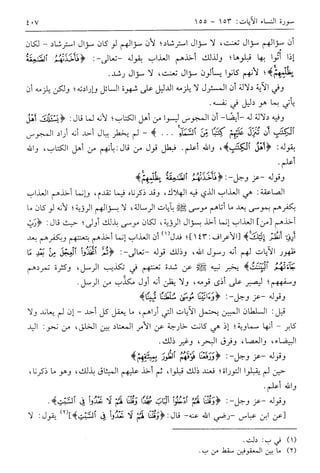 سورة النساء الآيات: ١٥٣ - ١٥٥
٤٠٧
أن سؤالهم سؤال تعنت، لا سؤال استرشاد؛ لأن سؤالهم لو كان سؤال استرشاد - لكان
إذا أُتوا بها قبلوها؛ ولذلك أخذهم العذاب بقوله -تعالى-: ﴿فَأَخَذَتْهُمُ الصَّاعِقَةُ
بِظُلْمِهِمْ﴾؛ لأنهم كانوا يسألون سؤال تعنت، لا سؤال رشد.
وفي الآية دلالة أن المسئول لا يلزمه الدليل على شهوة السائل وإرادته؛ ولكن يلزمه أن
يأتي بما هو دليل في نفسه.
وفيه دلالة له -أيضًا- أن المجوس ليسوا من أهل الكتاب؛ لأنه لما قال: ﴿يَسْأَلُكَ أَهْلُ
الْكِتَابِ أَن تُنَزِّلَ عَلَيْهِمْ كِتَابًا مِّنَ السَّمَاءِ ...﴾ - لم يخطر ببال أحد أنه أراد المجوس
بقوله: ﴿أَهْلُ الْكِتَابِ﴾، والله أعلم. فبطل قول من قال: بأنهم من أهل الكتاب، والله
أعلم.
وقوله -عز وجل-: ﴿فَأَخَذَتْهُمُ الصَّاعِقَةُ بِظُلْمِهِمْ﴾
الصاعقة: هي العذاب الذي فيه الهلاك، وقد ذكرناه فيما تقدم، وإنما أخذهم العذاب
بكفرهم بموسى بعد ما أتاهم موسى ﷺ بآيات الرسالة، لا بسؤالهم الرؤية؛ لأنه لو كان ما
أخذهم [من] العذاب إنما أخذ بسؤال الرؤية، لكان موسى بذلك أولى؛ حيث قال: ﴿رَبِّ
أَرِنِي أَنظُرْ إِلَيْكَ﴾ [الأعراف: ١٤٣]؛ فدل(١) أن العذاب إنما أخذهم بتعنتهم وبكفرهم بعد
ظهور الآيات لهم أنه رسول الله، وذلك قوله -تعالى-: ﴿ثُمَّ اتَّخَذُوا الْعِجْلَ مِنْ بَعْدِ مَا
جَاءَتْهُمُ الْبَيِّنَاتُ﴾ يخبر نبيه ﷺ عن شدة تعنتهم في تكذيب الرسل، وكثرة تمردهم
وسفههم؛ ليصبر على أذى قومه، ولا يظن أنه أول مكذَّب من الرسل.
وقوله -عز وجل-: ﴿وَآتَيْنَا مُوسَىٰ سُلْطَانًا مُّبِينًا﴾
قيل: السلطان المبين يحتمل الآيات التي أراهم، ما يعقل كل أحد - إن لم يعاند ولا
كابر - أنها سماوية؛ إذ هي كانت خارجة عن الأمر المعتاد بين الخلق، من نحو: اليد
البيضاء، والعصا، وفرق البحر، وغير ذلك.
وقوله -عز وجل-: ﴿وَرَفَعْنَا فَوْقَهُمُ الطُّورَ بِمِيثَاقِهِمْ﴾
حين لم يقبلوا التوراة؛ فعند ذلك قبلوا، ثم أخذ عليهم الميثاق بذلك، وهو ما ذكرنا،
والله أعلم.
وقوله -عز وجل-: ﴿وَقُلْنَا لَهُمُ ادْخُلُوا الْبَابَ سُجَّدًا وَقُلْنَا لَهُمْ لَا تَعْدُوا فِي السَّبْتِ﴾.
[عن ابن عباس -رضي الله عنه- قال: ﴿وَقُلْنَا لَهُمْ لَا تَعْدُوا فِي السَّبْتِ﴾](٢) يقول: لا
(١) في ب: دلت.
(٢) ما بين المعقوفين سقط من ب.